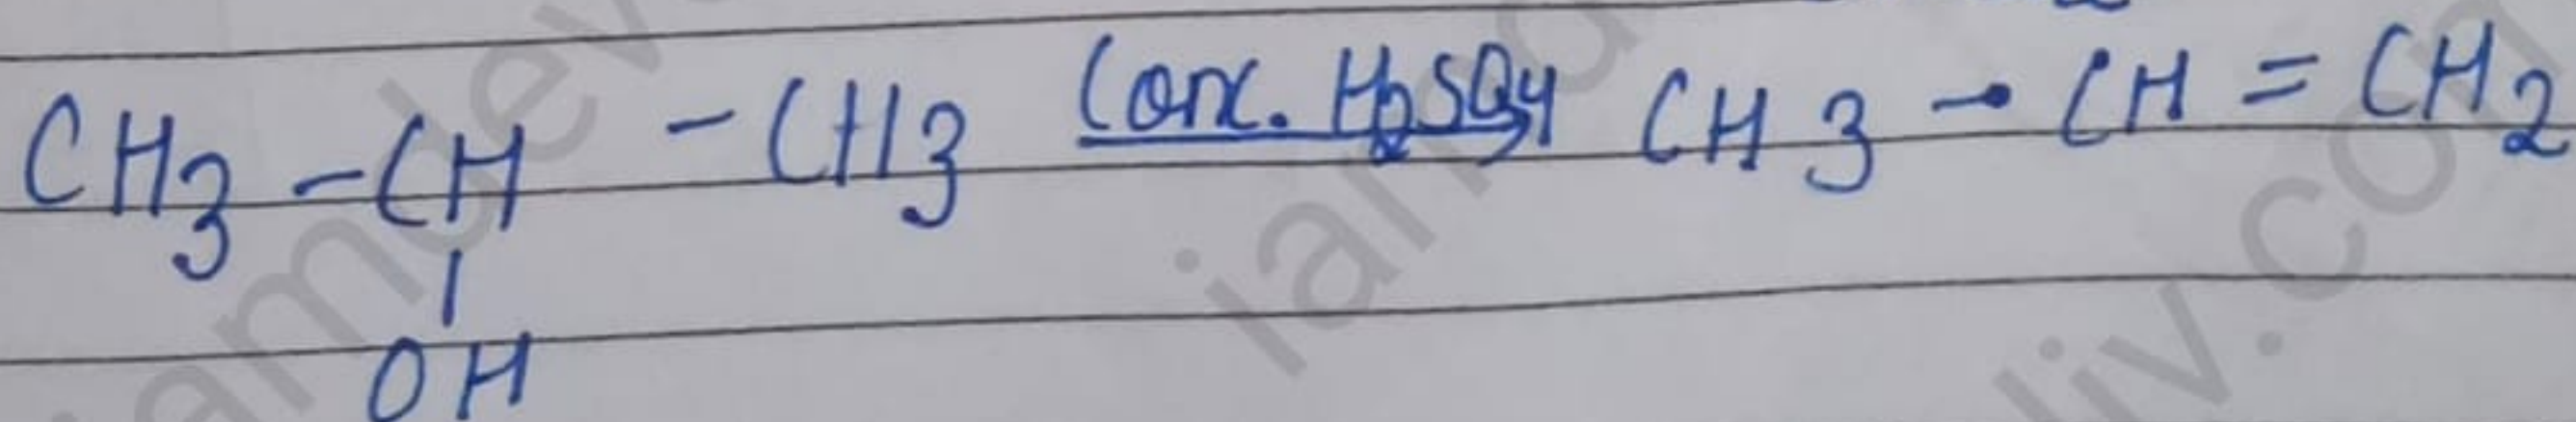 CH3 - CH - CH3 Conc. H2SO4 CH3 - CH = CH2
|
OH